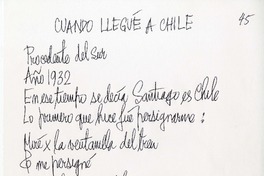 CUANDO LLEGUÉ A CHILE
45
Procedente del Sur
Año 1932
En ese tiempo se decía Santiago es Chile
Lo primero que hice fué persignarme:
Miré x la ventanilla del tren
& me persigné